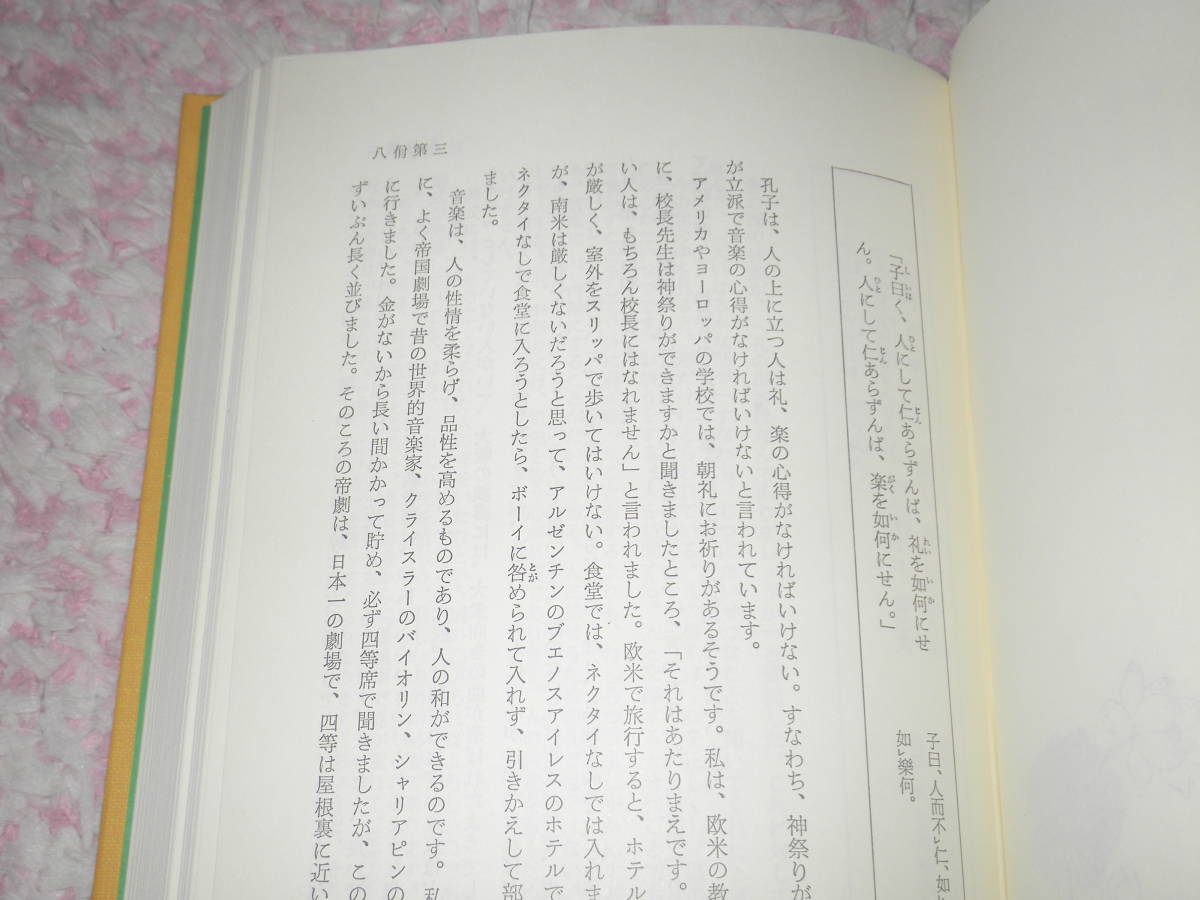 「子曰く、人にして仁あらずんば、礼を如何にせ
ん。人にして仁あらずんば、楽を如何にせん。」
子曰、人而不㆑仁、如
如㆑樂何。
孔子は、人の上に立つ人は礼、楽の心得がなければいけない。すなわち、神祭りが
が立派で音楽の心得がなければいけないと言われています。
アメリカやヨーロッパの学校では、朝礼にお祈りがあるそうです。私は、欧米の教
に、校長先生は神祭りができますかと聞きましたところ、「それはあたりまえです。
い人は、もちろん校長にはなれません」と言われました。欧米で旅行すると、ホテル
が厳しく、室外をスリッパで歩いてはいけない。食堂では、ネクタイなしでは入れま
が、南米は厳しくないだろうと思って、アルゼンチンのブエノスアイレスのホテルで
ネクタイなしで食堂に入ろうとしたら、ボーイに咎められて入れず、引きかえして部
ました。
音楽は、人の性情を柔らげ、品性を高めるものであり、人の和ができるのです。私
に、よく帝国劇場で昔の世界的音楽家、クライスラーのバイオリン、シャリアピンの
に行きました。金がないから長い間かかって貯め、必ず四等席で聞きましたが、この
ずいぶん長く並びました。そのころの帝劇は、日本一の劇場で、四等は屋根裏に近い
八佾第三